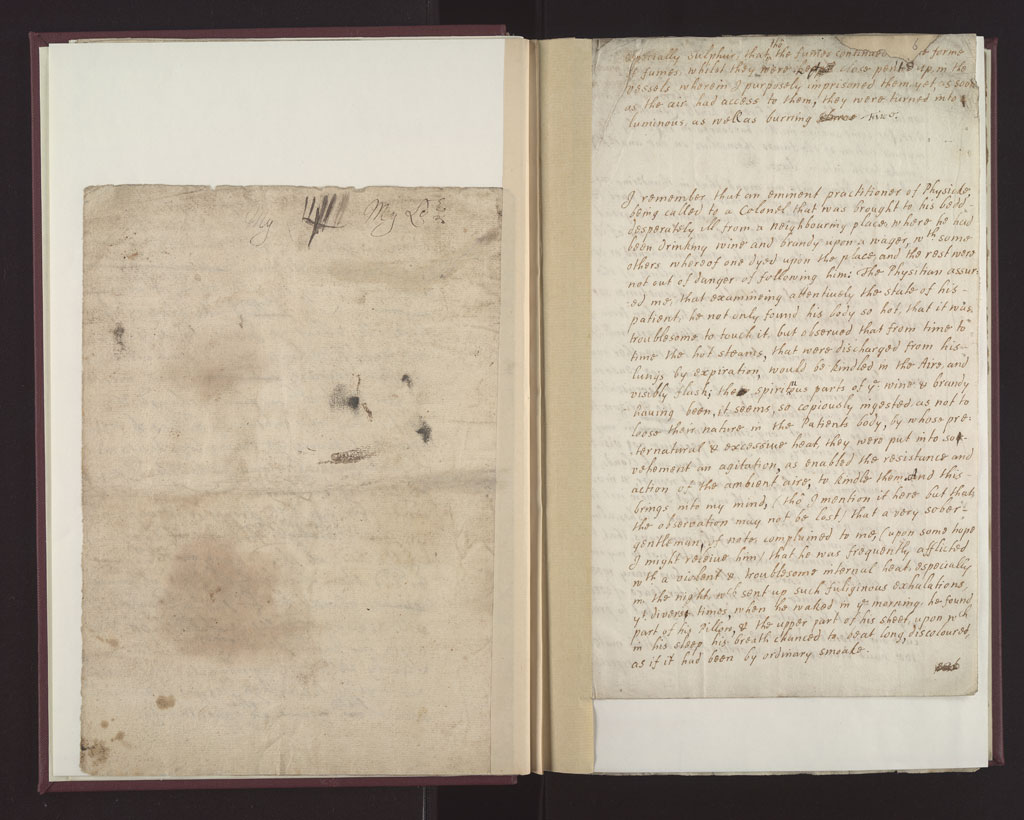 My Lo
especially sulphur, that tho the fumes continued forme
of fumes, whilst they were close penn'd up in the
vessels wherein I purposely imprisoned them, yet, as soon
as the air had access to them, they were turned into
luminous, as well as burning
I remember that an eminent practitioner of Physicke,
being called to a Colonel that was brought to his bedd
desperately ill from a neighbouring place, where he had
been drinking wine and brandy upon a wager, wth some
others whereof one dyed upon the place, and the rest were
not out of danger of following him: The Physitian assur-
ed me, that examineing attentively the state of his
patient, he not only found his body so hot, that it was
troublesome to touch it but observed that from time to
time the hot steams, that were discharged from his
lungs by expiration, would be kindled in the Aire, and
visibly flash; the spirituous parts of ye wine & brandy
having been, it seems, so copiously ingested as not to
loose their nature in the Patients body, by whose pre-
ternatural & excessive heat they were put into so
vehement an agitation, as enabled the resistance and
action of the ambient aire, to kindle them. And this
brings into my mind, (tho I mention it here but that
the observation may not be lost) that a very sober
gentleman of note, complained to me, (upon some hope
I might releive him) that he was frequently afflicted
wth a violent & troublesome internal heat, especially
in the night, wch sent up such fuliginous exhalations,
yt divers times, when he waked in ye morning, he found
part of his Pillow, & the upper part of his sheet, upon wch
in his sleep his breath chanced to beat long, discoloured,
as if it had been by ordinary smoake.